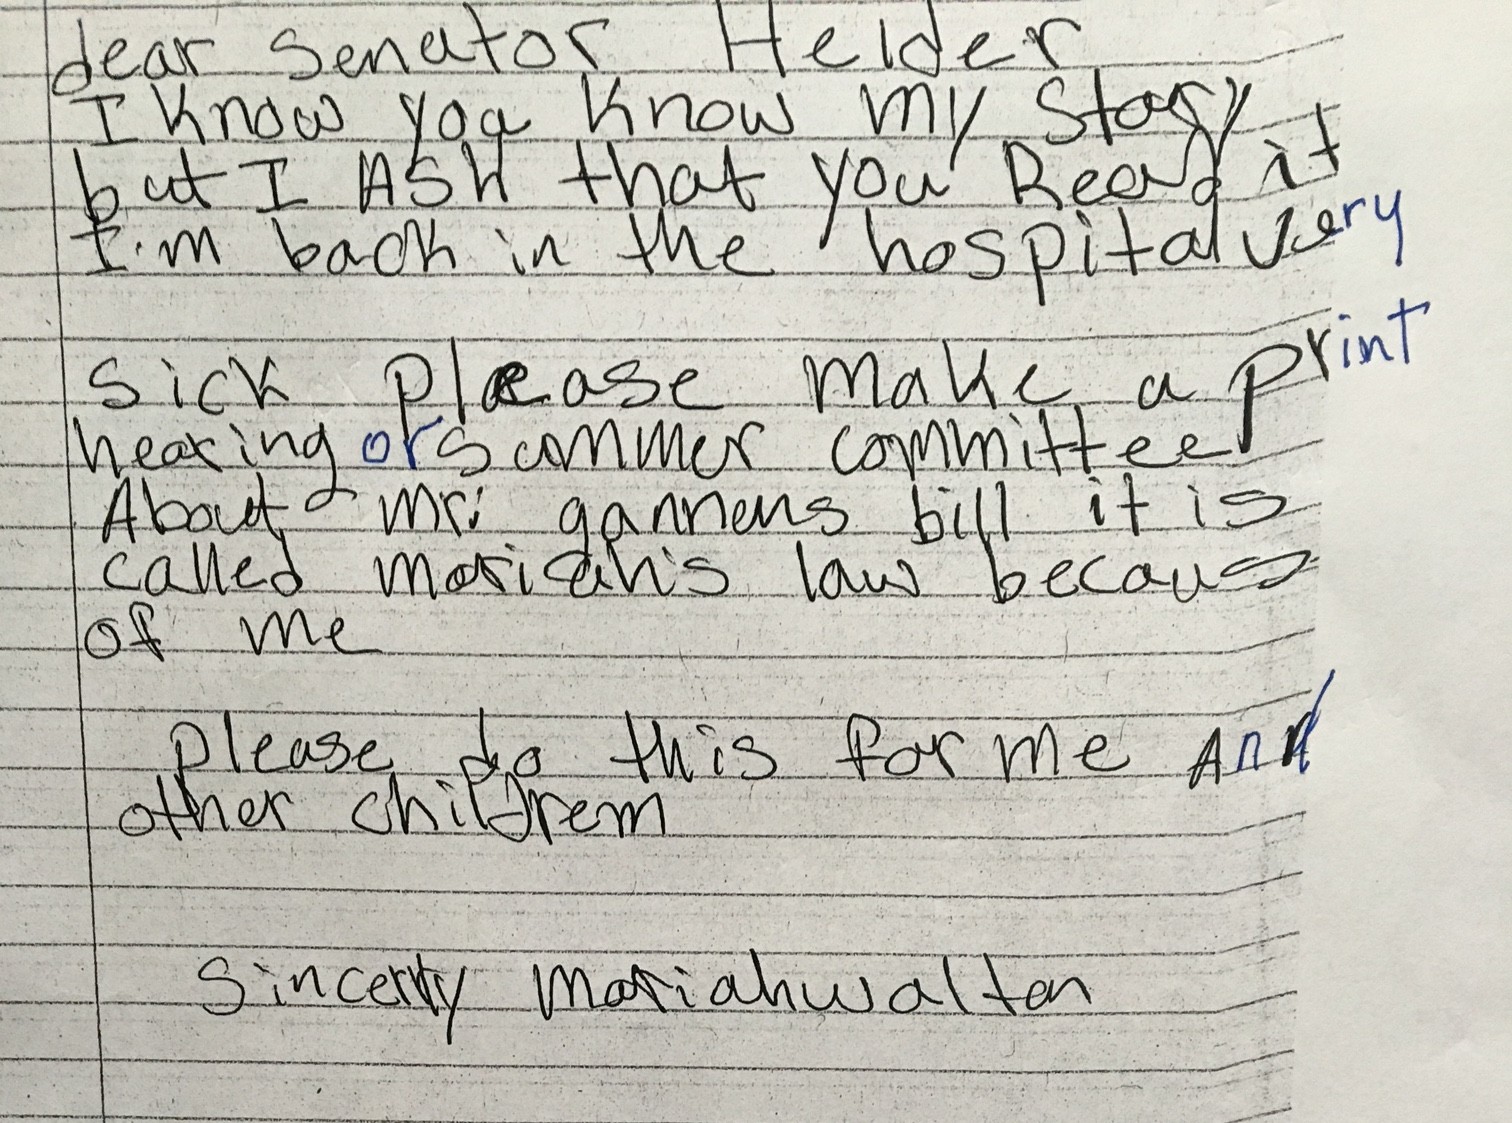 dear senator Helder
I know you know my story
but I ASk that you Read it
I'm back in the hospital very
sick please make a print
hearing or scommer committee
About mr. ganners bill it is
called moriah's law becaus
of me
please do this for me And
other children
sincerly moriahwalten